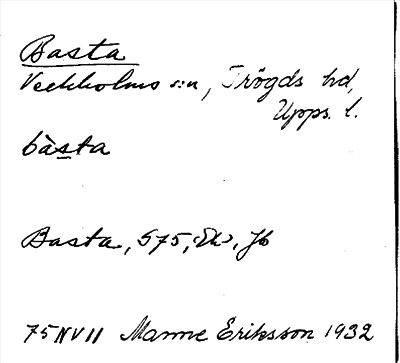 Basta
Veckholms sn, Trögds hd,
Upps. l.
bàsta
Basta, 575, Ek, Jb
75 NV 11 Manne Eriksson 1932